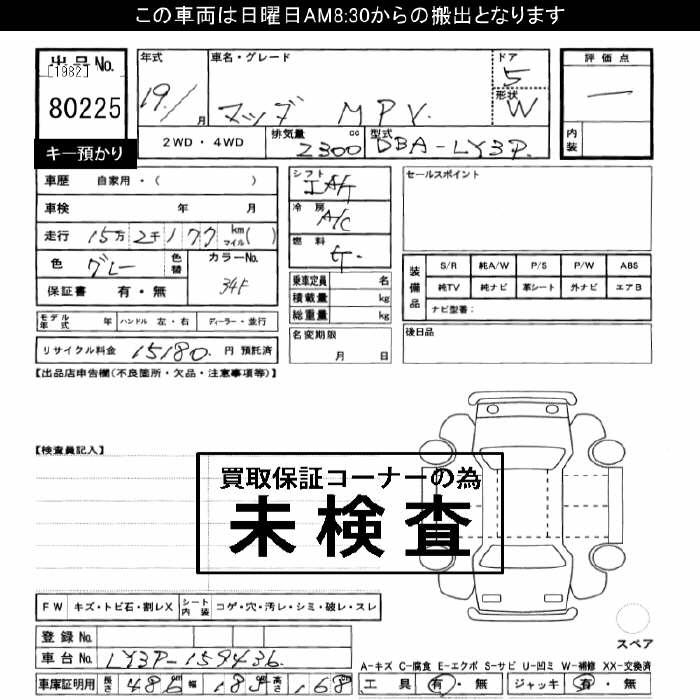 この車両は日曜日AM8:30からの搬出となります
出品No.
[1982]
80225
キー預かり
年式 車名・グレード ドア
19/1 月 マツダ MPV 5
形状 W
2WD・4WD 排気量 2300 cc 型式 DBA-LY3P
評価点
内装
車歴 自家用・( )
車検 年 月
走行 15万 2千 177 km マイル( )
色 グレー 色替 カラーNo. 34F
保証書 有・無
モデル年式 年 ハンドル 左・右 ディーラー・並行
リサイクル料金 15180 円 預託済
シフト IAT
冷房 A/C
燃料
乗車定員 名
積載量 kg
総重量 kg
名変期限
月 日
セールスポイント
装備品 S/R 純A/W P/S P/W ABS
純TV 純ナビ 革シート 外ナビ エアB
ナビ型番:
後日品
【出品店申告欄(不良箇所・欠品・注意事項等)】
【検査員記入】
買取保証コーナーの為
未検査
FW キズ・トビ石・割レX シート内装 コゲ・穴・汚レ・シミ・破レ・スレ
登録No.
車台No. LY3P-159436
車庫証明用 長さ 486 幅 185 高さ 168
スペア
A-キズ C-腐食 E-エクボ S-サビ U-凹ミ W-補修 XX-交換済
工具 有・無 ジャッキ 有・無